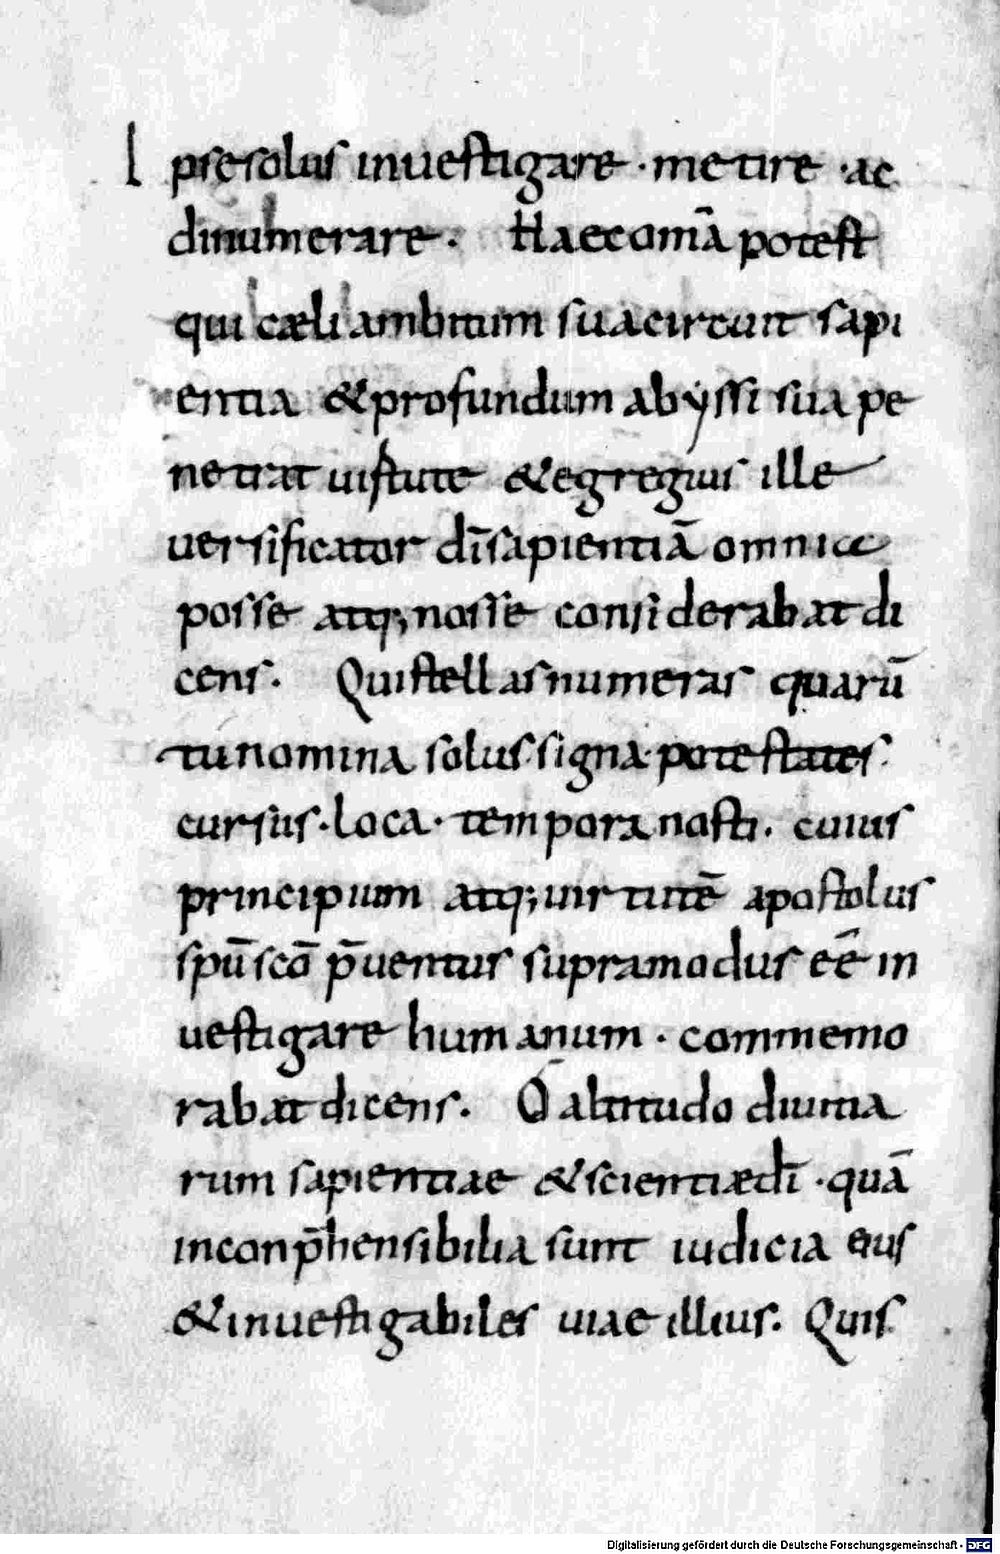 Ipse solus investigare · metire · ac
dinumerare · Haec omā potest
qui cæli ambitum sua circuit sapi
entia & profundum abyssi sua pe
netrat uirtute & egregius ille
versificator dī sapientiā omnia
posse atq; nosse considerabat di
cens · Qui stellas numeras quarū
tu nomina solus · signa · potestates ·
cursus · loca · tempora nosti · cuius
principium atq; uirtutē apostolus
spū scō p̄uentus supra modus eē in
vestigare humanum · commemo
rabat dicens · O altitudo diuitia
rum sapientiae & scientiæ dī · quā
inconp̄hensibilia sunt iudicia eius
& investigabiles uiae illius · Quis
Digitalisierung gefördert durch die Deutsche Forschungsgemeinschaft - DFG